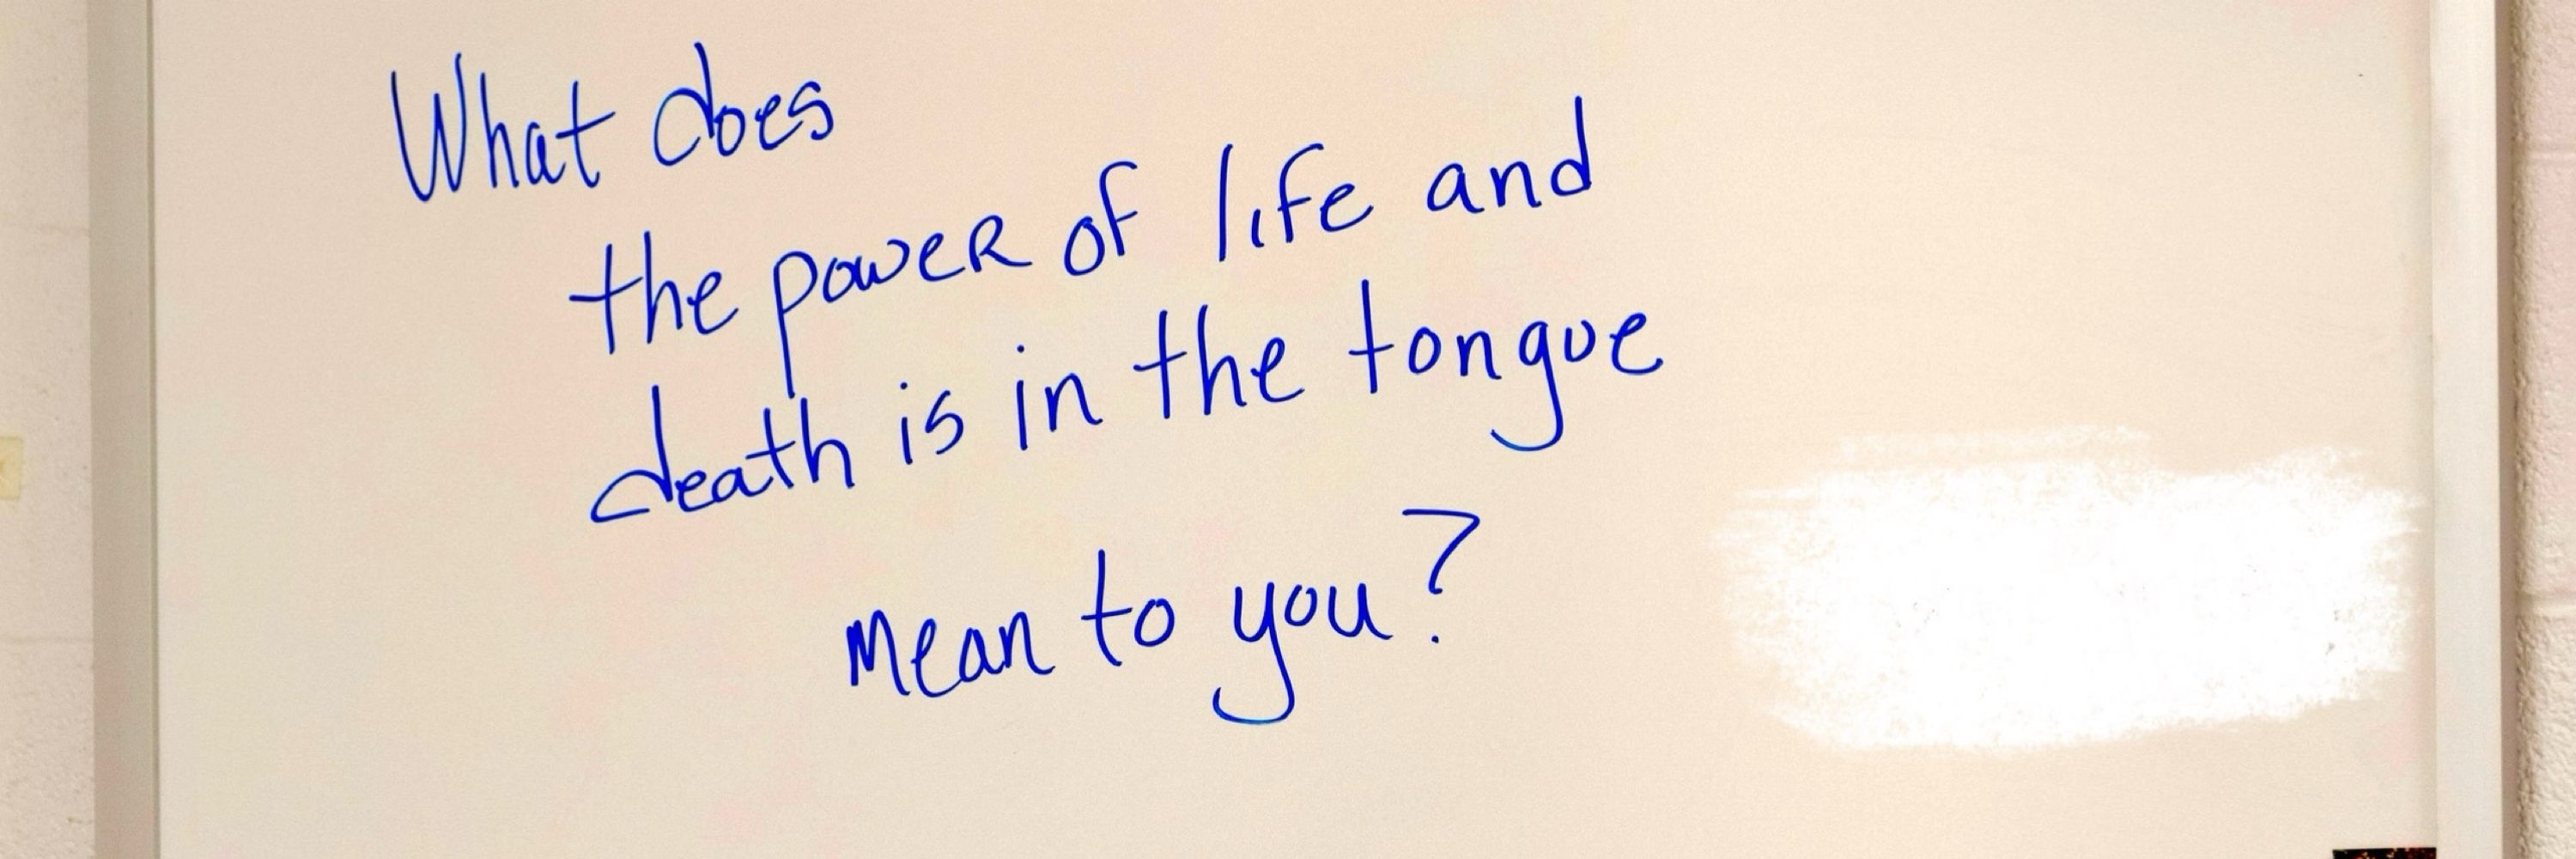 What does
the power of life and
death is in the tongue
Mean to you?